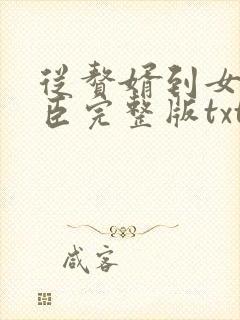 从赘婿到女
臣完整版txt
咸客